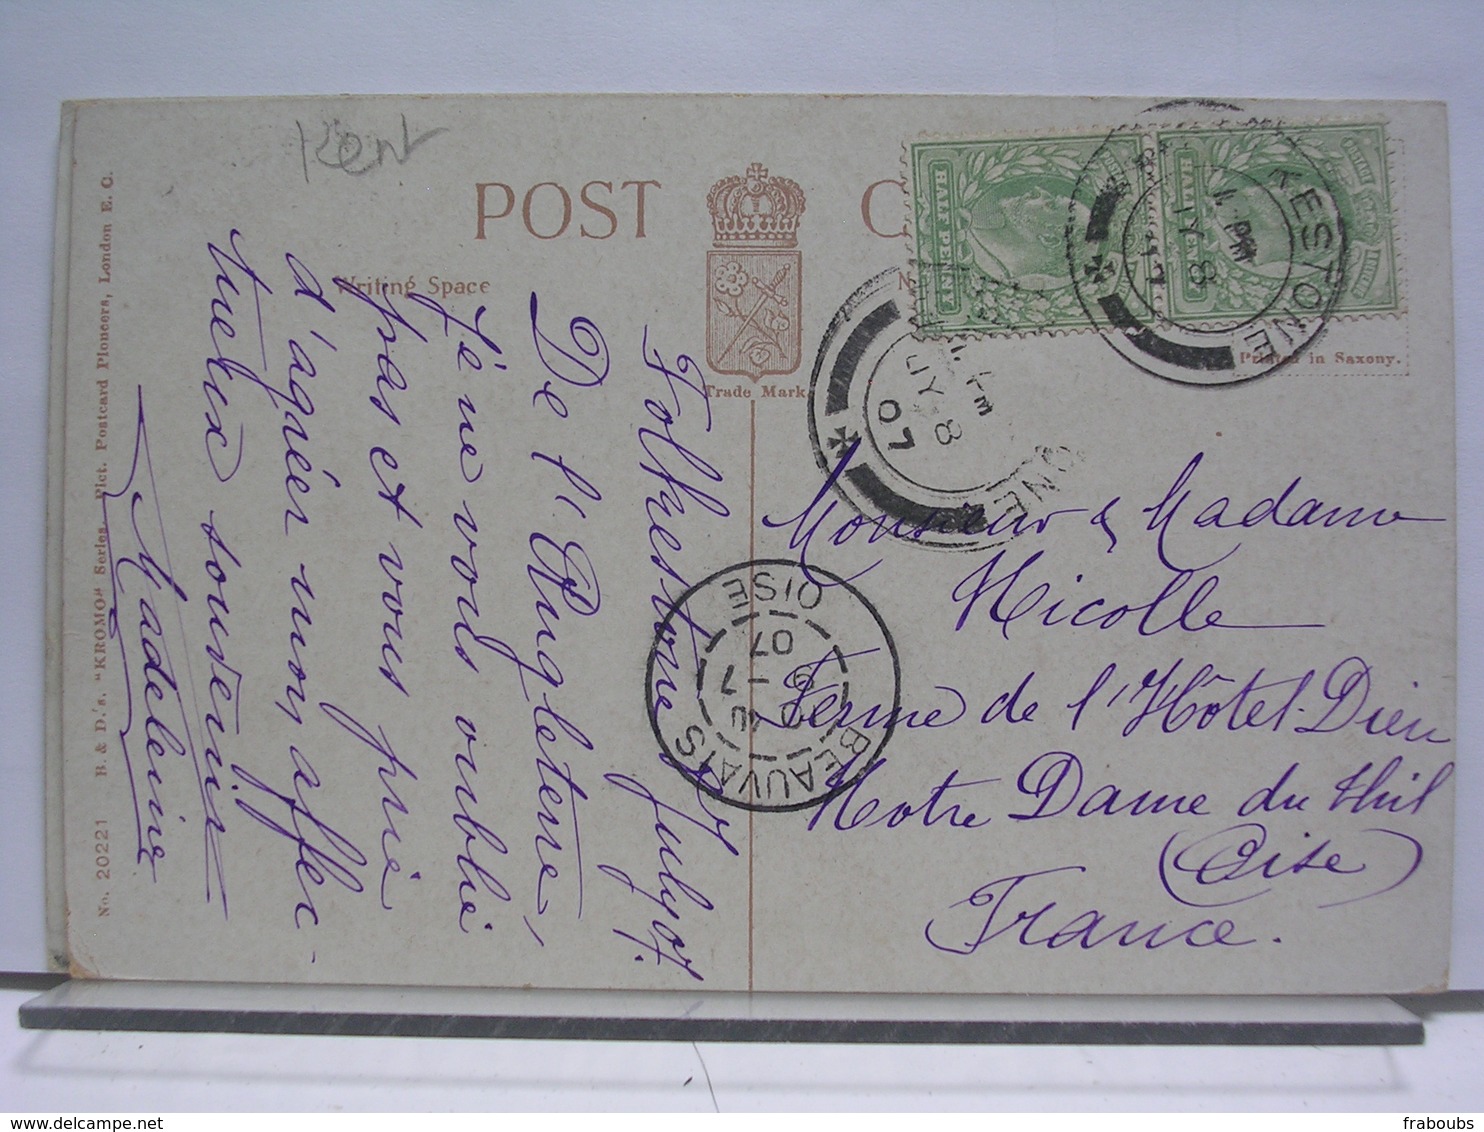 Kent
POST
Writing Space
Trade Mark.
Printed in Saxony.
HALF PENNY
HALF PENNY
KESTONE
11 PM
JY 8
07
ONE
JY 8
07
BEAUVAIS
OISE
9 -7
07
Folkestone 8 July 07.
De l'Angleterre,
Je ne vous oublie
pas et vous prie
d'agréer mon affec-
tueux souvenir
Madeleine
Monsieur & Madame
Nicolle
Ferme de l'Hôtel-Dieu
Notre Dame du Thil
(Oise)
France.
No. 20221 B. & D.'s. "KROMO" Series. Pict. Postcard Pioneers, London E. C.
Delcampe.net
fraboubs